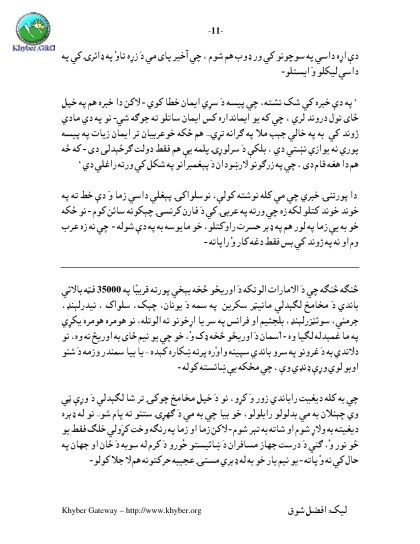 -11-
Khyber.ORG
دې اړه داسې په سوچونو کې ور ډوب هم شوم ، چې آخير پای مې دَ زړه تاوٴ په ډائرۍ کې په
داسې ليکلو وَ ايستلو-
' په دې خبرې کې شک نشته، چې پيسه دَ سړي ايمان خطا کوي - لاکن دا خبره هم په خپل
ځای تول دروند لري ، چې که يو ايمانداره کس ايمان ساتلو ته جوګه شي- نو په دې مادي
ژوند کې به په خالي جېب ملا په ګرانه تړي.. هم ځکه خو عربيان تر ايمان زيات په پيسه
پورې نه يوازې نښتي دي ، بلکې دَ سرلوړۍ پلمه يې هم فقط دولت ګرځېدلی دی - که څه
هم دا هغه قام دی ، چې په زرګونو لارښودان دَ پېغمبرانو په شکل کې ورته راغلي دي '
دا پورتنۍ خبرې چې مې کله نوشته کولې، نو سلواکۍ پېغلې داسې زما وَ دې خط ته په
خوند خوند کتلو لکه زه چې ورته په عربۍ کې دَ فارن کرنسۍ چېکونه سائن کوم - نو ځکه
خو به يې زما په لور هم په ډېر حسرت راوکتلو ، خو مايوسه به په دې شوله - چې نه زه عرب
وم او نه په ژوند کې بس فقط دغه کار وٴ را پاته-
څنګه څنګه چې دَ الامارات الوتکه دَ اوريځو څخه بيخي پورته قريبًا په 35000 فټه بالائې
باندې دَ مخامخ لګېدلي مانيټر سکرين په سمه دَ يونان، چېک، سلواک ، نيدرلېنډ،
جرمنې، سوئټزرلېنډ، بلجئيم او فرانس په سر يا اړخونو ته الوتله، نو هومره هومره يکړې
په ما غمېدله لګيا وه - آسمان دَ اوريځو څخه ډک وٴ، خو چې يو نيم ځای به اوريځ نه وه، نو
دلاندې به دَ غرونو په سرو باندې سپينه واوره پرته ښکاره کېده - يا بيا سمندر وزمه دَ شنو
اوبو لوی وړې ډنډې وې ، چې مځکه يې ښائسته کوله-
چې به کله ديغيت راباندې زور وَ کړو ، نو دَ خپل مخامخ چوکۍ تر شا لګېدلي دَ وړې ټي
وي چېنلان به مې بدلولو را بلولو ، خو بيا چې به مې دَ ګهړۍ ستنو ته پام شو.. نو له ډېره
ديغيته به ولاړ شوم او شاته به تېر شوم - لاکن زما او زما په رنګه وخت کړولي خلګ فقط يو
څو نور وٴ، ګنې دَ درست جهاز مسافران دَ ښائيستو حُورو دَ کرم له سوبه دَ ځان او جهان په
حال کې نه وٴ پاته - يو نيم يار خو به له ډېرې مستۍ عجيبه حرکتونه هم لا جلا کولو-
Khyber Gateway – http://www.khyber.org
ليک: افضل شوق